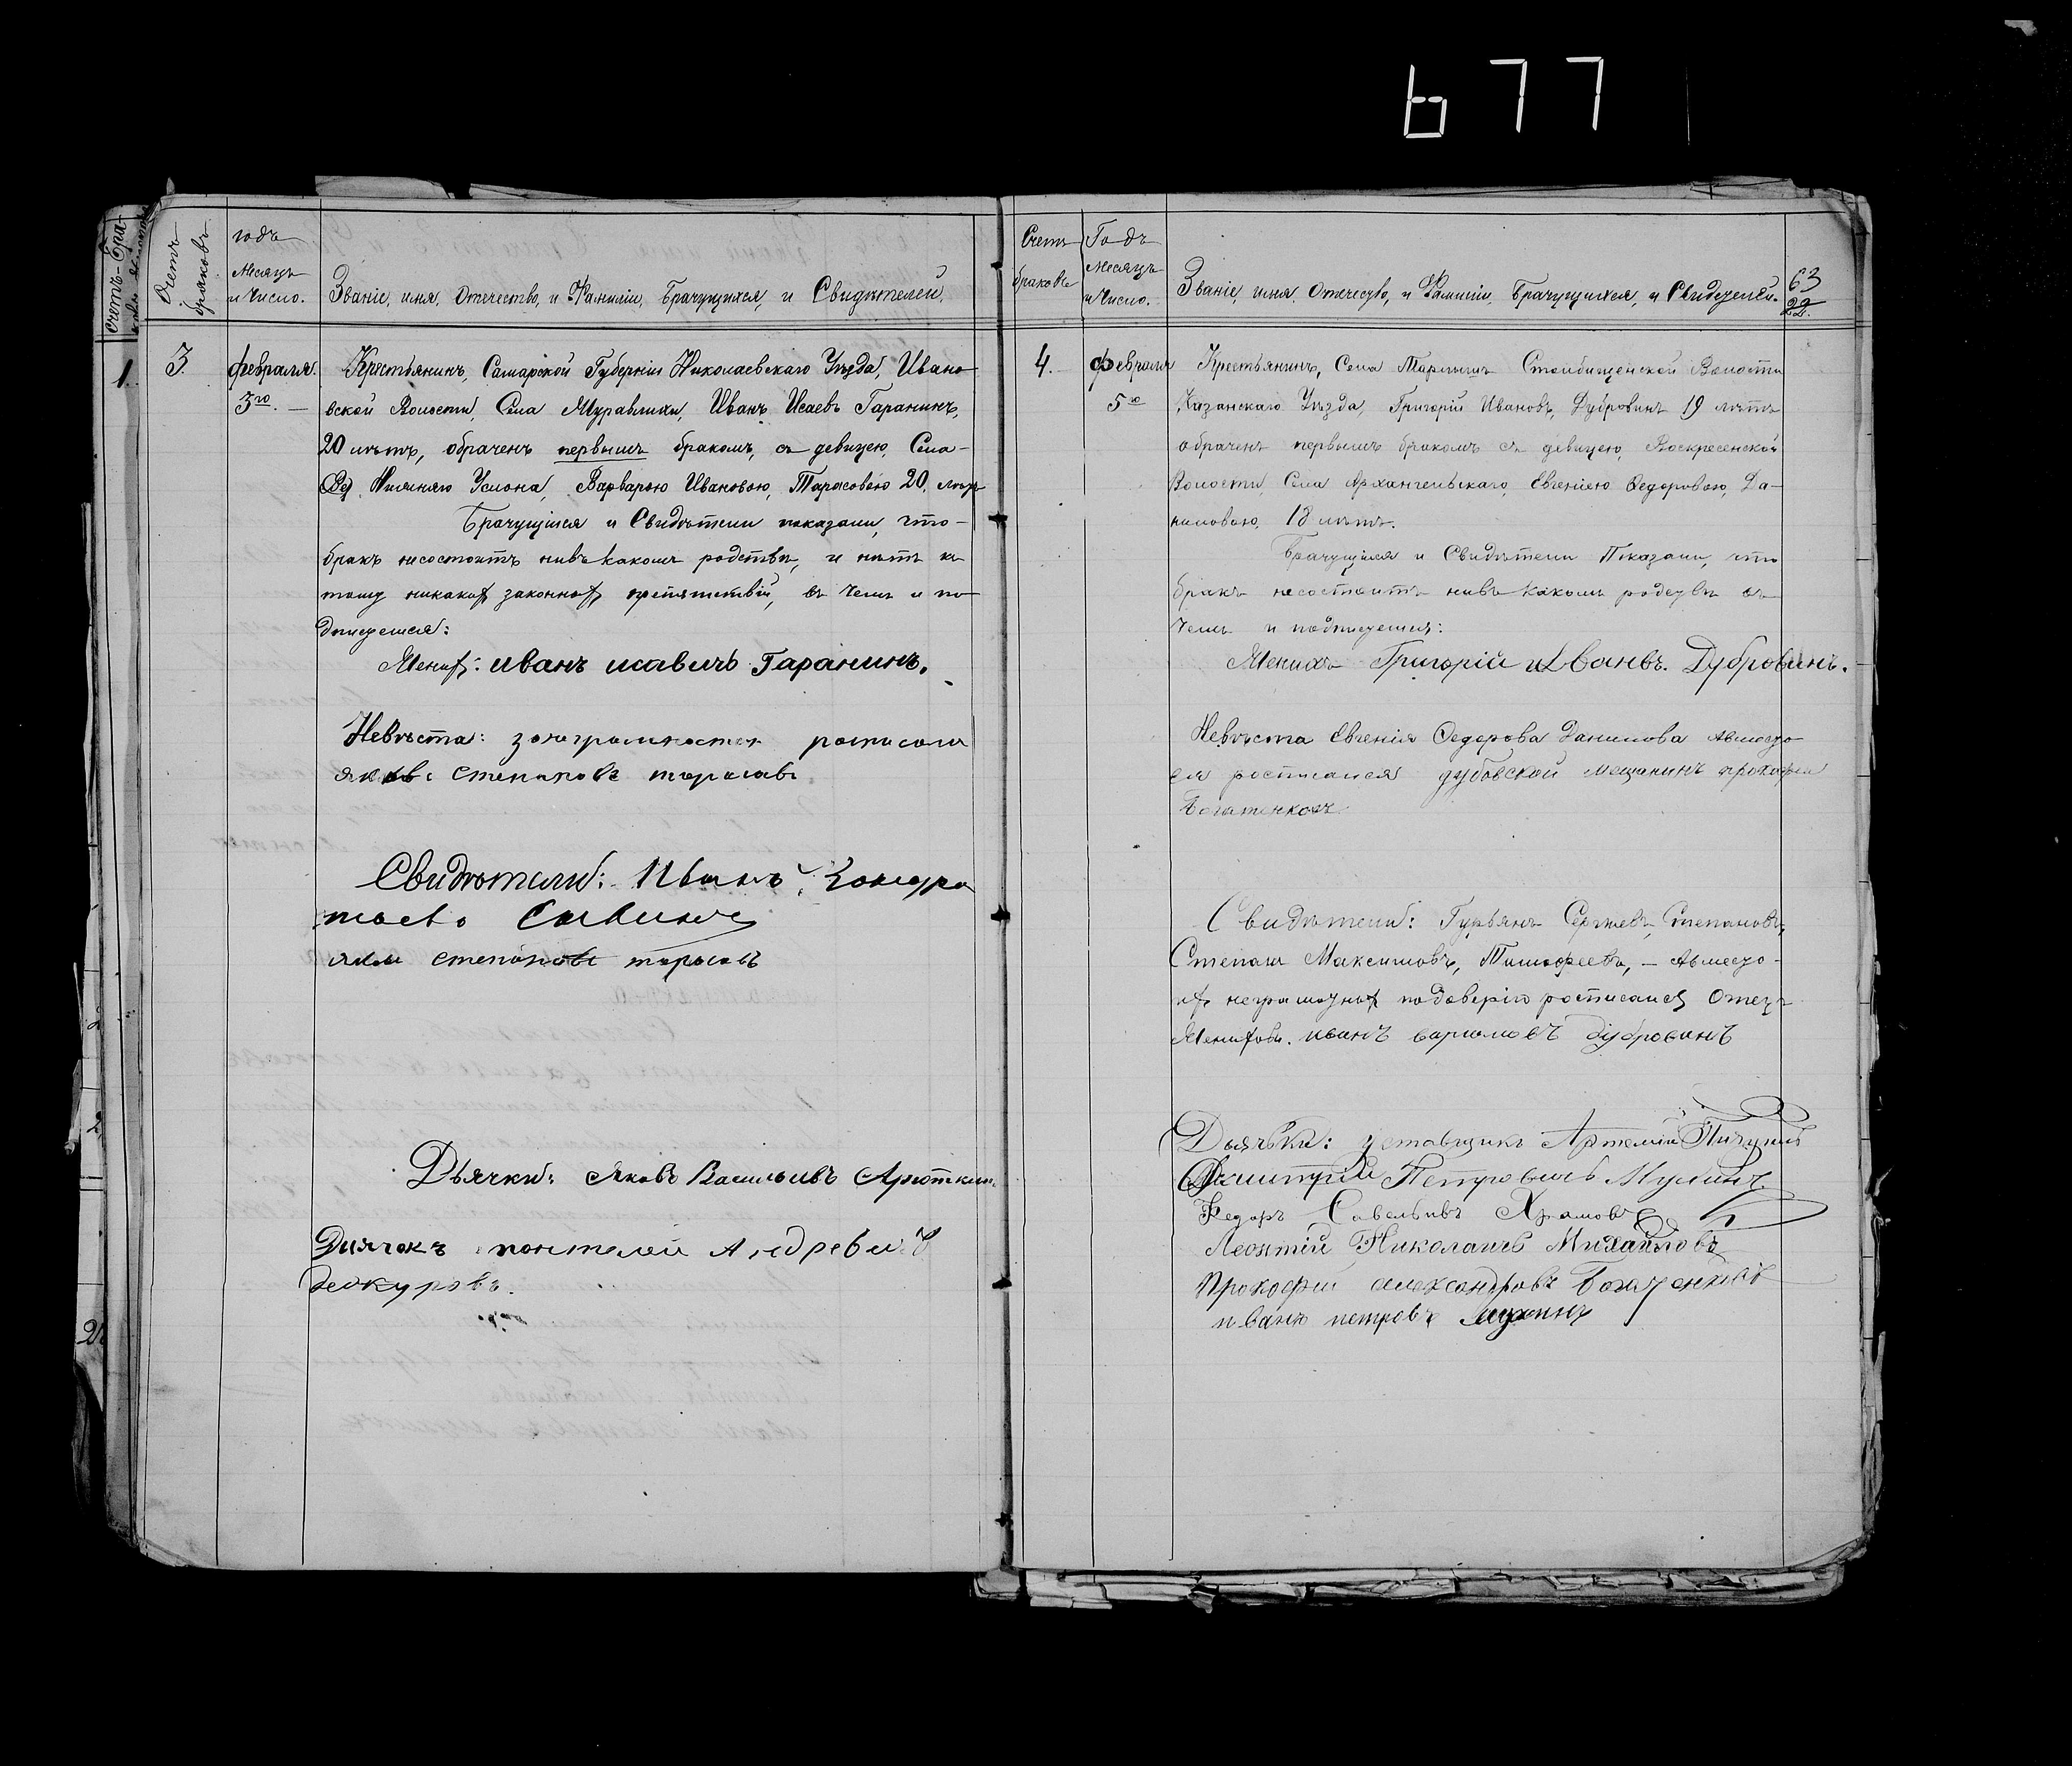 677
счетъ бра-
Счетъ браковъ
годъ
Месяцъ
и Число.
Званіе, имя, Отечество, и Фамиліи, Брачущихся, и Свидѣтелей,
1.
3.
февраля
3го.
Крестьянинъ, Самарской Губерніи Николаевскаго Уѣзда, Ивано
вской Волости, Села Муравлихи, Иванъ Исаевъ Гаранинъ,
20 лѣтъ, обраченъ первымъ бракомъ, съ девицею, Села-
Нижняго Услона, Варварою Ивановою, Тарасовою 20, лѣтъ
Брачущіися и Свидѣтели показали, что-
бракъ несостоитъ нивъ какомъ родствѣ, и нѣтъ къ
тому никаких законных препятствій, въ чемъ и по
дписуемся:
Жених: иванъ исавичъ Гаранинъ.
Невѣста: расписался
яковъ степановъ тарасовъ
Свидѣтели: Иванъ
Савинъ
степановъ тарасовъ
Дьячки: Яковъ Васильивъ
Диячокъ понтелей Андревич
2
2
Счетъ
браковъ
Годъ
Месяцъ
и Число.
Званіе, имя, Отечество, и Фамиліи, Брачущихся, и Свидетелей.
63
22.
4.
февраля
5го
Крестьянинъ, Села Волости
Казанскаго Уѣзда, Григорій Ивановъ, Дубровинъ 19 лѣтъ
обраченъ первымъ бракомъ съ девицею, Воскресенской
Волости, Села Архангельскаго, Евгеніею Ѳедоровою, Да-
ниловою, 18 лѣтъ.
Брачущіися и Свидѣтели Показали, что
бракъ несостоитъ нивъ какомъ родствѣ въ
чемъ и подписуемся:
Женихъ Григорій Иванвъ. Дубровинъ.
Невѣста Евгенія Ѳедорова Данилова авместо
ея росписался дубовской мещанинъ прокофеи
Богатенковъ
Свидѣтели: Гурьянъ Сергѣевъ, Степановъ,
Степанъ Максимовъ, Тимофеевъ, - авместо-
их неграмотных подоверію росписался Отецъ
Женихов. иванъ варламовъ дубровинъ
Дьячьки: уставщикъ Артемій Пичугинъ
Дмитрій Петровичъ Мулинъ.
Федоръ Савельивъ Храмовъ
Леонтій Николаичъ Михайловъ
Прокофии александровъ Богатенковъ
иванъ петровъ